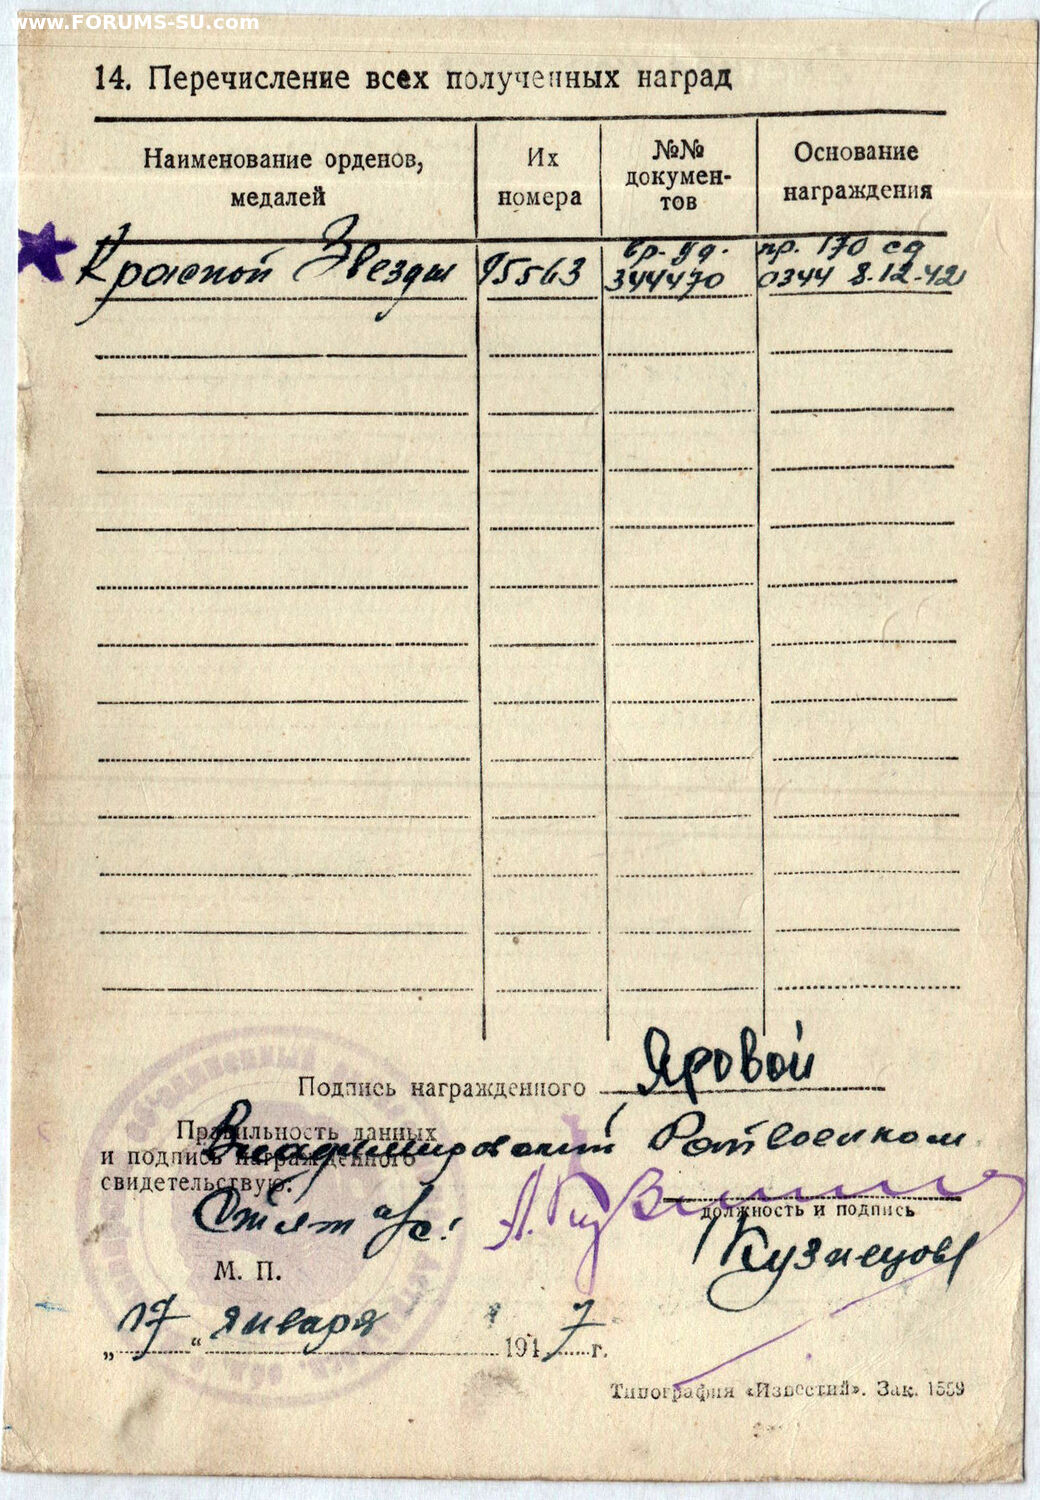 www.FORUMS-SU.com
14. Перечисление всех полученных наград
Наименование орденов, медалей
Их номера
№№ документов
Основание награждения
Красной Звезды 95563 вр. уд. 344470 пр. 170 сд 0344 8.12.42
Подпись награжденного Яровой
Правильность данных
и подпись награжденного
свидетельствую:
Владимировский Райвоенком
должность и подпись
Кузнецов
М. П.
„17“ января 1947 г.
Типография «Известий». Зак. 1559